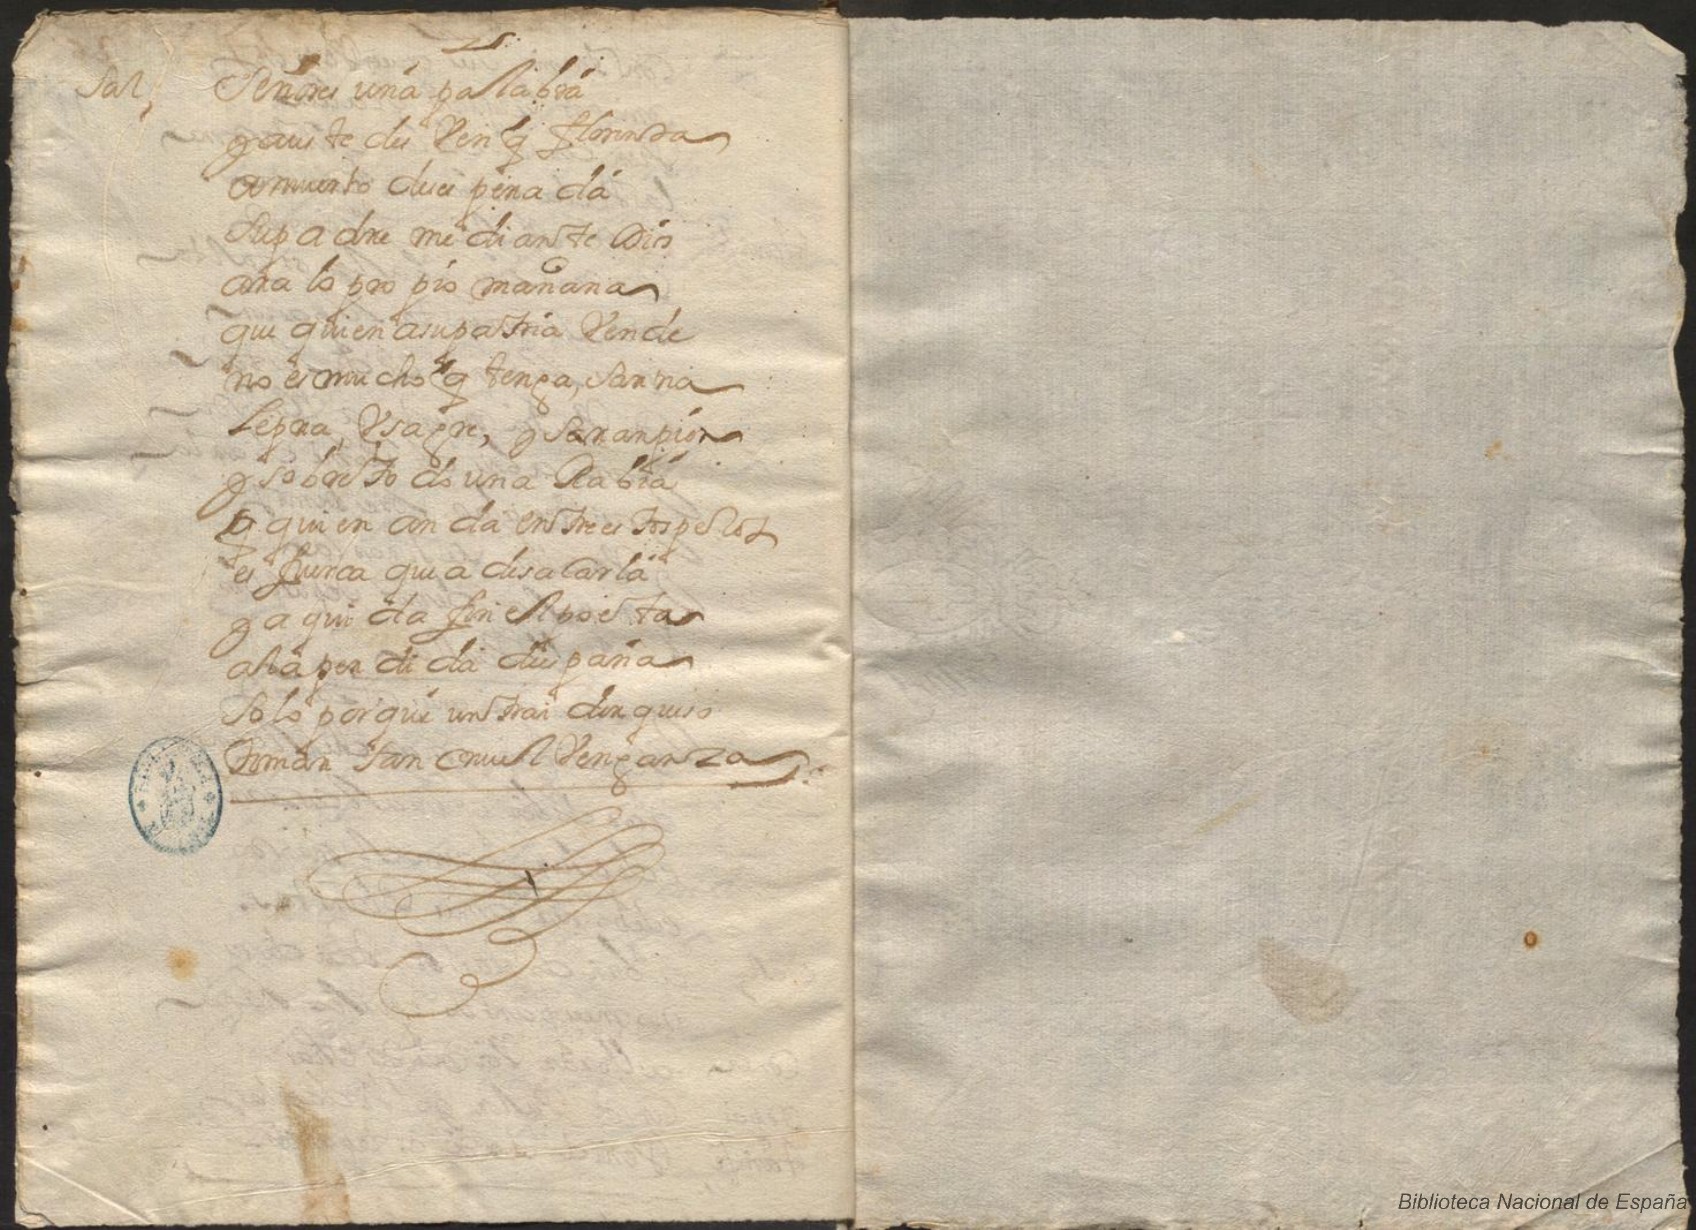 Sal, Señores una palabra
y aues te des Ven q florinda
a muerto dees pena da
su padre mediante Dios
ara lo propio mañana
que quien a su patria Vende
no es mucho q tenga, sarna
lepra, Vsagre, y saranpion
y sobre todo una Rabia
q quien anda entre estos perros
es fuerca que a de sacarla
y aqui da fin el poeta
a la perdida despaña
solo porque un traidor quiso
tomar tan cruel Venganza
Biblioteca Nacional de España